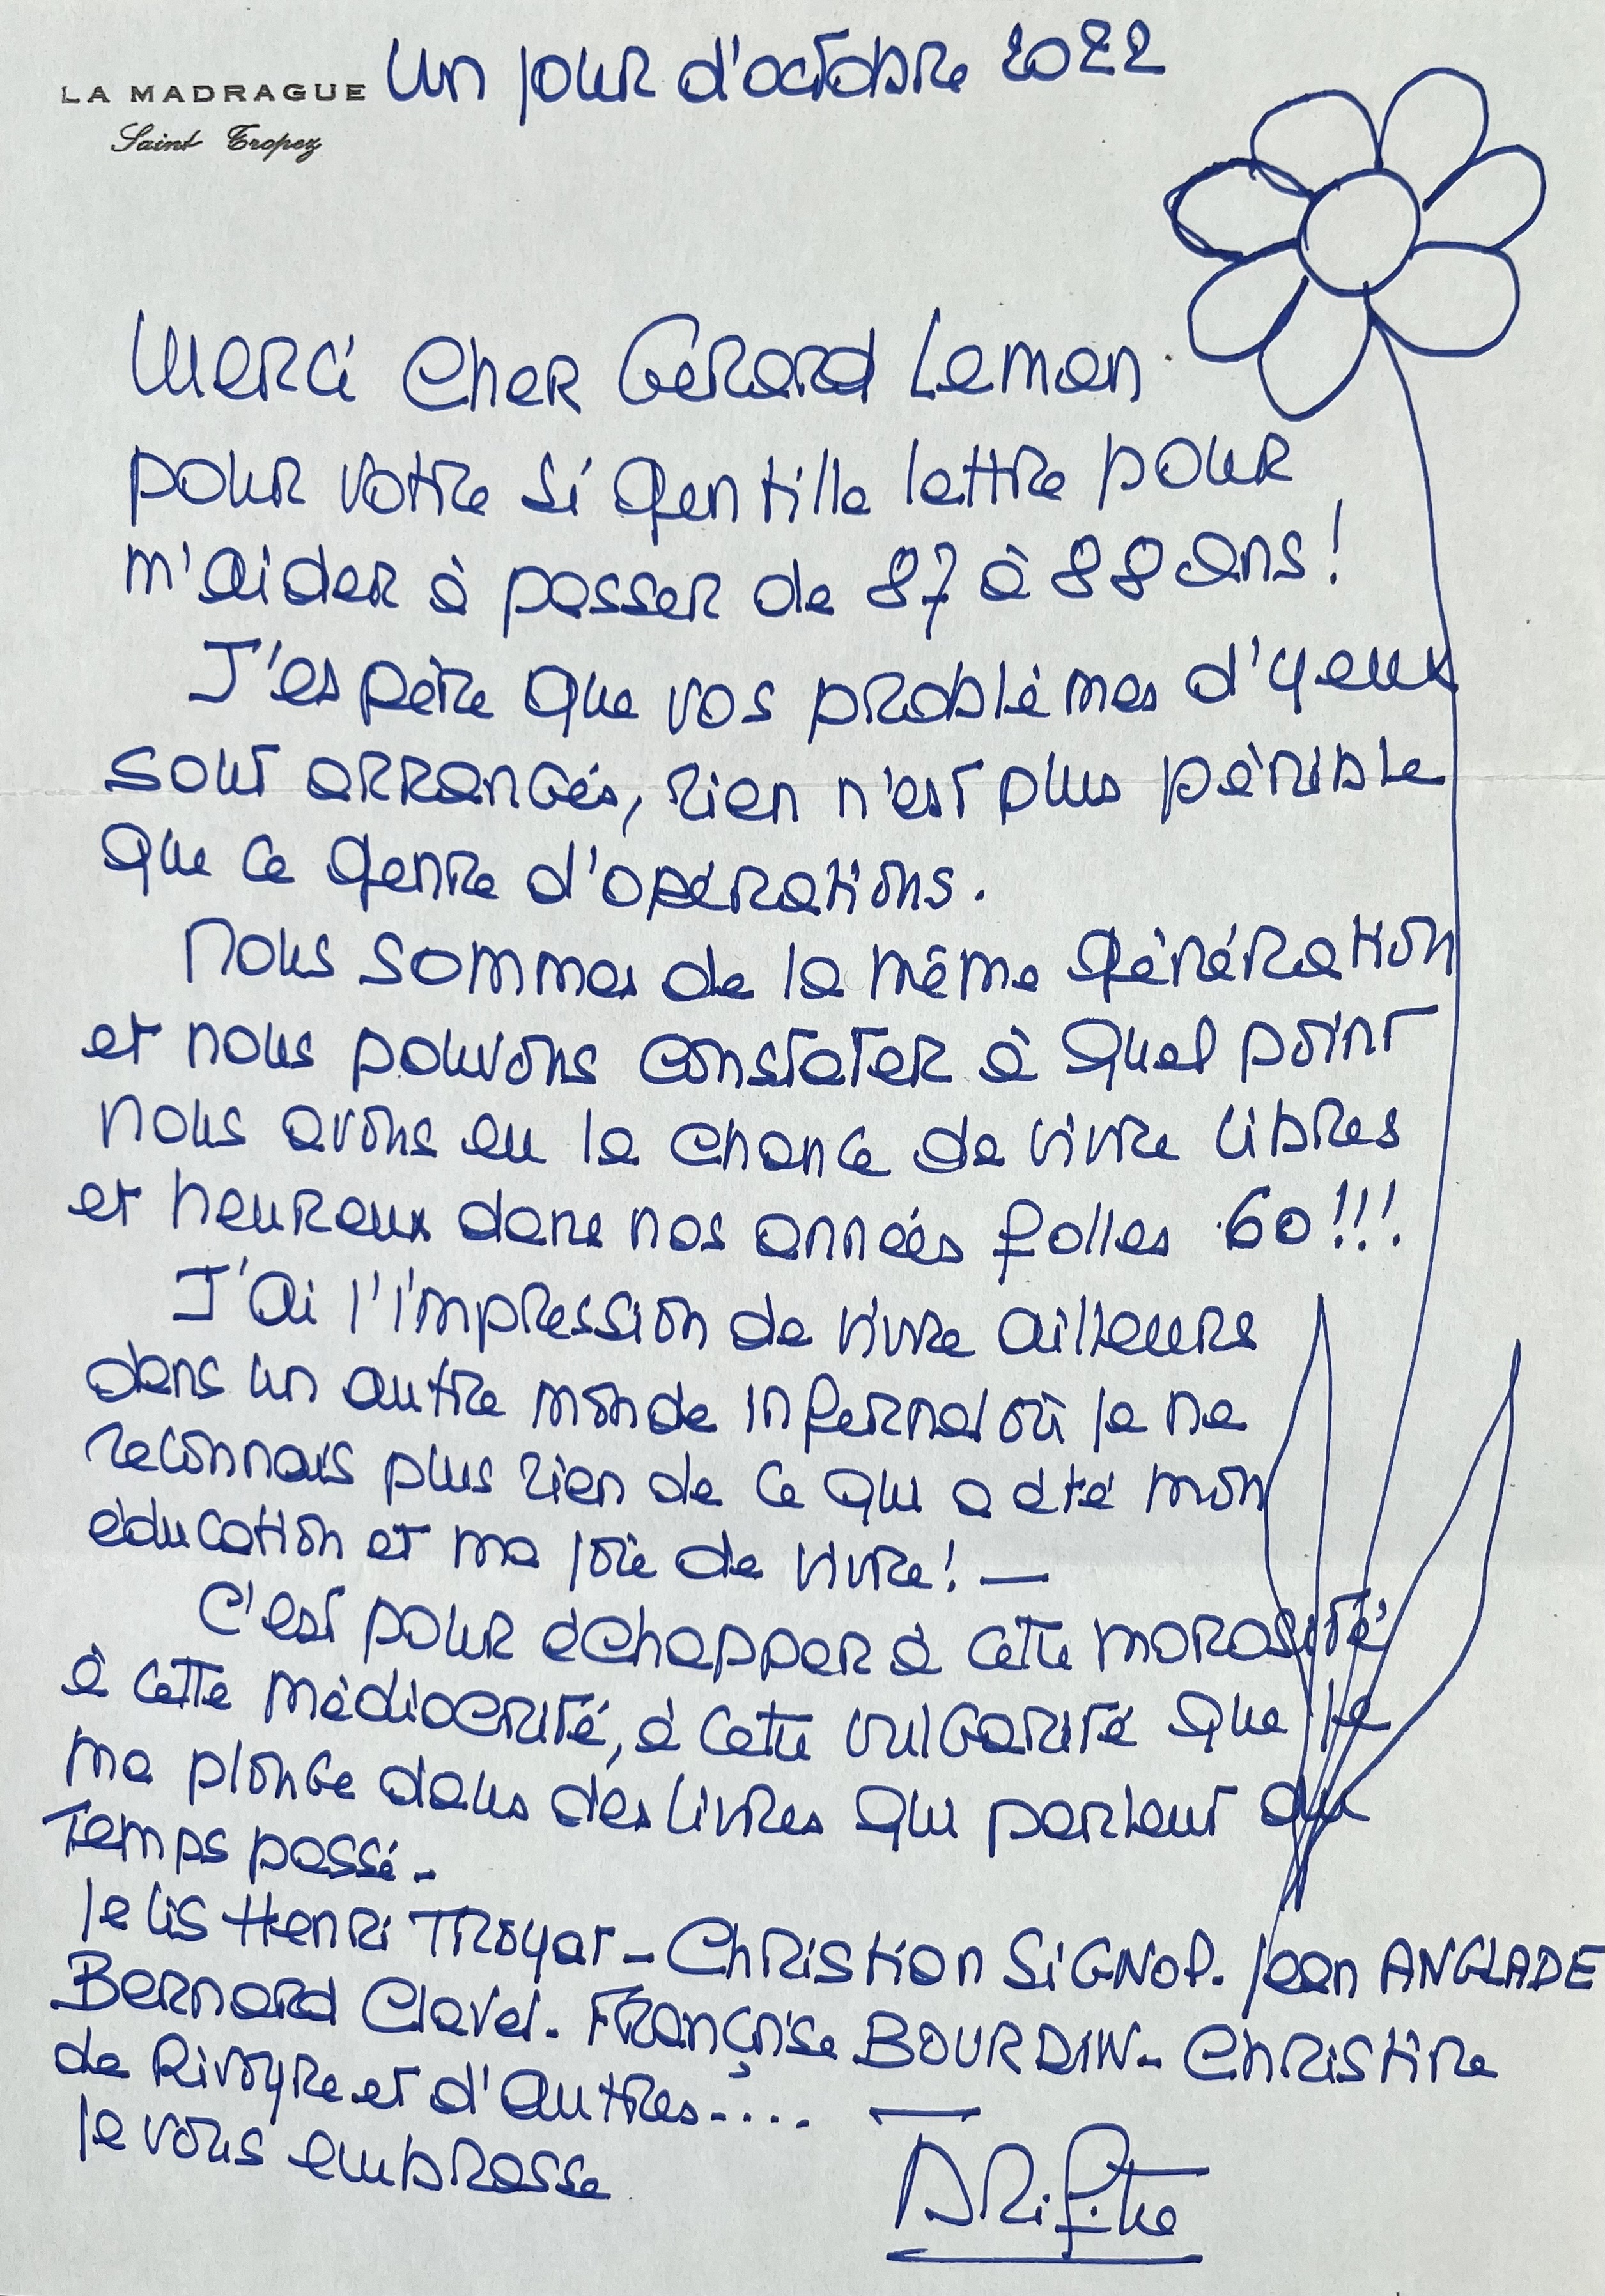 LA MADRAGUE
Saint Tropez
un jour d'octobre 2022
Merci Cher Gérard Leman
pour votre si gentille lettre pour
m'aider à passer de 87 à 88 ans !
J'espère que vos problèmes d'yeux
sont arrangés, rien n'est plus pénible
que ce genre d'opérations.
Nous sommes de la même génération
et nous pouvons constater à quel point
nous avons eu la chance de vivre libres
et heureux dans nos années folles 60 !!!
J'ai l'impression de vivre ailleurs
dans un autre monde infernal où je ne
reconnais plus rien de ce qui a été mon
éducation et ma joie de vivre ! —
C'est pour échapper à cette morosité
à cette médiocrité, à cette vulgarité que je
me plonge dans des livres qui parlent du
Temps passé -
je lis Henri Troyat - Christian SIGNOL. Jean ANGLADE
Bernard Clavel. Françoise BOURDIN - Christine
de Rivoyre et d'autres - . . . . —
je vous embrasse
Brigitte